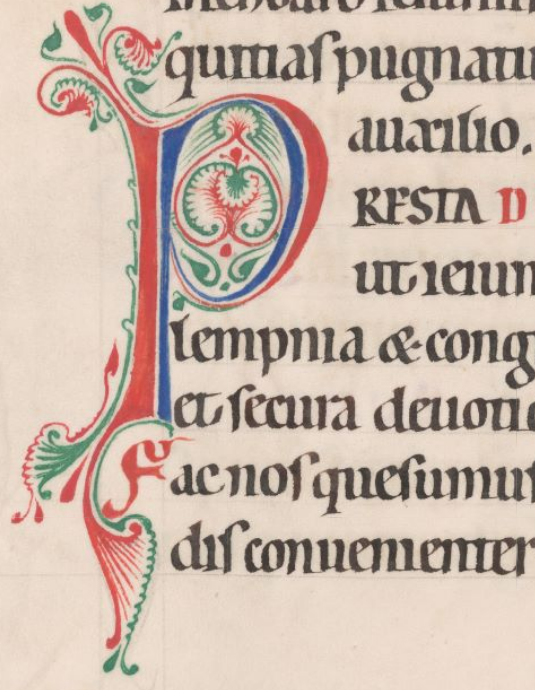 quitias pugnatu
auxilio.
P RESTA D
ut ieiun
lempnia & cong
et secura deuotio
F ac nos quesumus
dis conuenienter